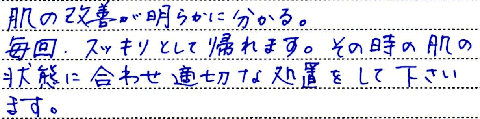 肌の改善が明らかに分かる。
毎回、スッキリとして帰れます。その時の肌の
状態に合わせ適切な処置をして下さい
ます。